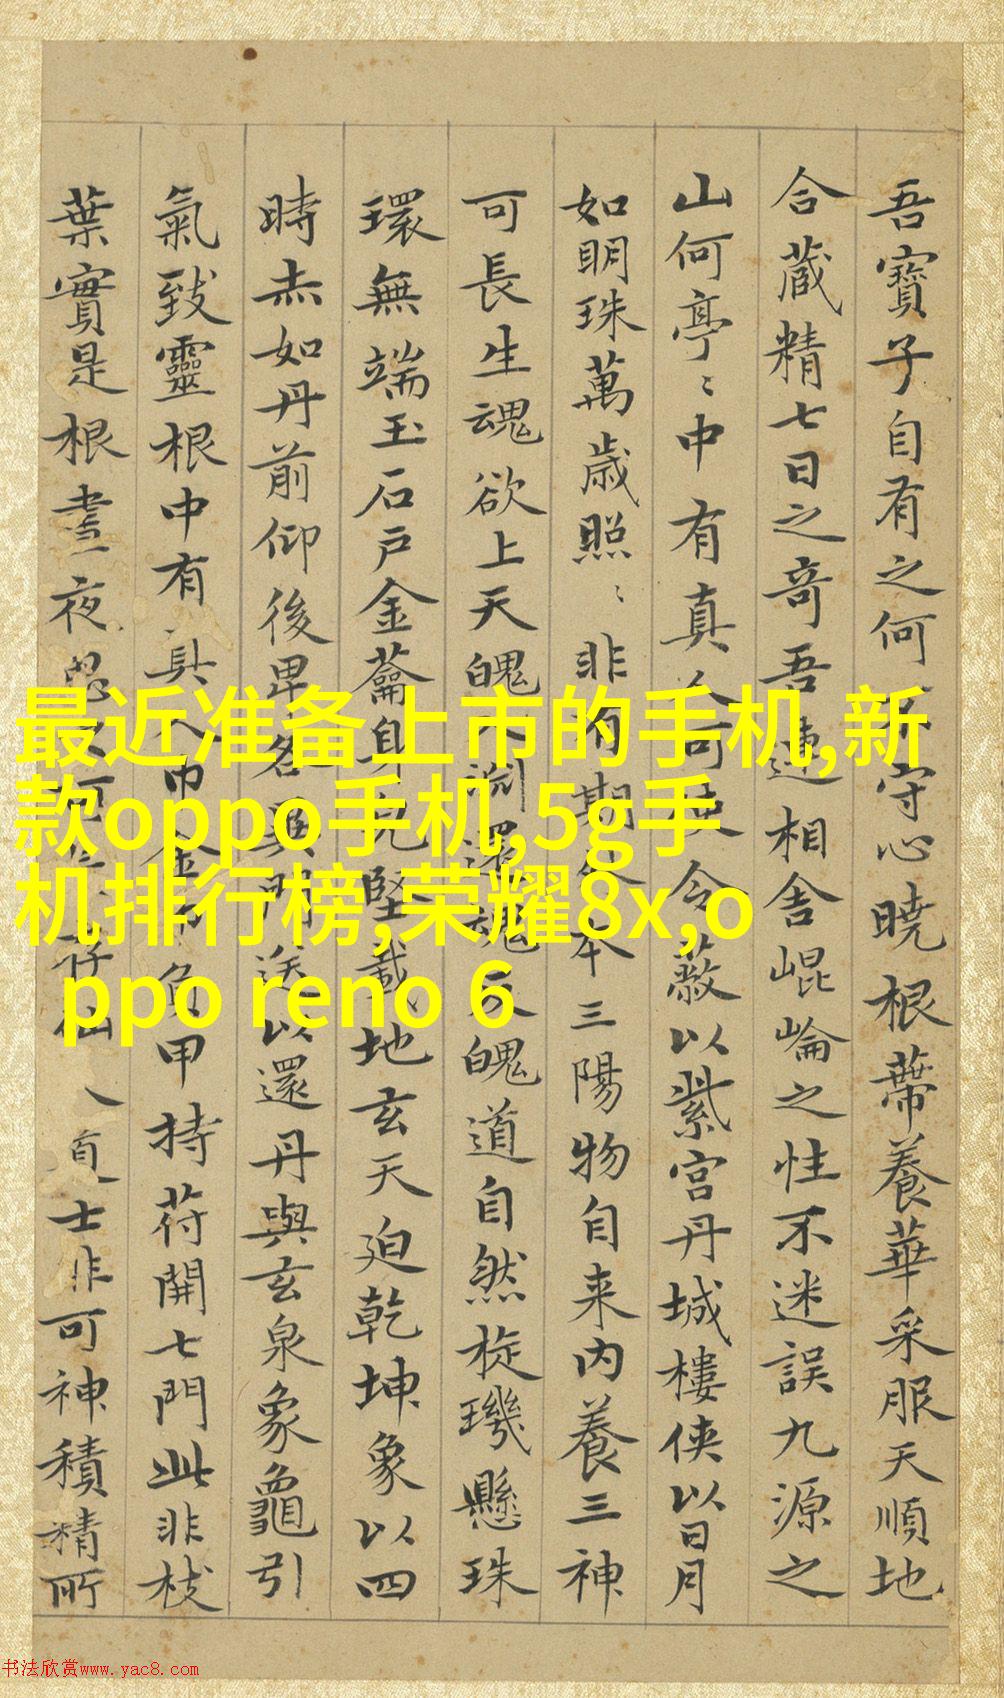 吾寶子自有之何 守心曉根蒂養華采服天順地
合藏精七日之奇吾 連相舍崐崘之性不迷誤九源之
山何亭〻中有真人何使令蔽以紫宮丹城樓俠以日月
如明珠萬歲照〻非有期 本三陽物自来內養三神
可長生魂欲上天魄 淵還魂反魄道自然旋璣懸珠
環無端玉石戶金蘥身皃堅載地玄天迫乾坤象以四
時赤如丹前仰後卑各異門送以還丹與玄泉象龜引
氣致靈根中有真人巾金巾負甲持苻開七門此非枝
葉實是根晝夜思之可 存仙 士非可神積精所
最近准备上市的手机,新
款oppo手机,5g手
机排行榜,荣耀8x,o
ppo reno 6
书法欣赏www.yac8.com